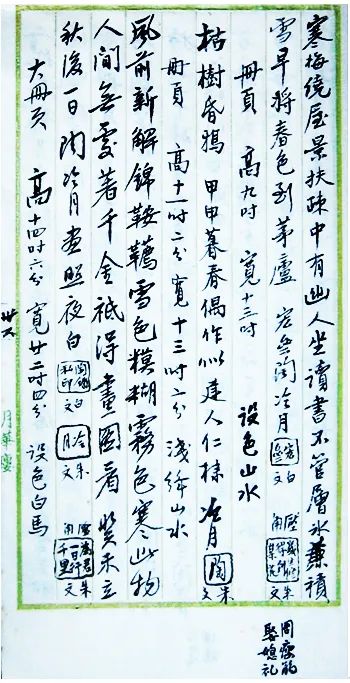 寒梅繞屋景扶疎中有幽人坐讀書不管層冰兼積
雪早將春色到茅廬 宏無陶冷月 白文 壓角 朱文
冊頁 高九吋 寬十三吋 設色山水
枯樹昏鴉 甲申暮春偶作似達人仁棣 冷月 陶 朱文
冊頁 高十一吋二分 寬十三吋二分 淺絳山水
風前新解錦鞍韉雪色模糊霧色寒此物
人間無處著千金祗得畫圖看 癸未立
秋後一日 陶冷月畫照夜白 私印 白文 冷月 朱文 壓角 一日行千里 朱文
大冊頁 高十四吋六分 寬廿二吋四分 設色白馬
月華
周
娶媳禮